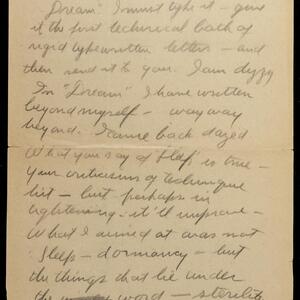 "Dream." I must type it – give
it the first technical bath of
rigid typewritten letters – and
then send it to you. I am dizzy
In "Dream" I have written
beyond myself – way way
beyond. I came back dazed
What you say of 'Sleep' is true –
Your criticisms of technique
hit – but perhaps in
tightening it'll improve –
What I aimed at was not
Sleep – dormancy – but
the things that lie under
the word – sterility